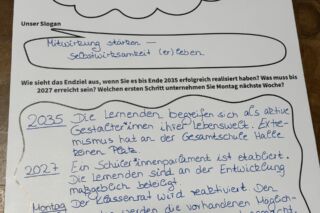 Unser Slogan
Mitwirkung stärken –
Selbstwirksamkeit (er)leben
Wie sieht das Endziel aus, wenn Sie es bis Ende 2035 erfolgreich realisiert haben? Was muss bis
2027 erreicht sein? Welchen ersten Schritt unternehmen Sie Montag nächste Woche?
2035 Die Lernenden begreifen sich als aktive
Gestalter*innen ihrer Lebenswelt. Extre-
mismus hat an der Gesamtschule Halle
keinen Platz.
2027 Ein Schüler*innenparlament ist etabliert.
Die Lernenden sind an der Entwicklung
maßgeblich beteiligt.
Montag Der Klassenrat wird reaktiviert. Den
werden die vorhandenen Möglich-